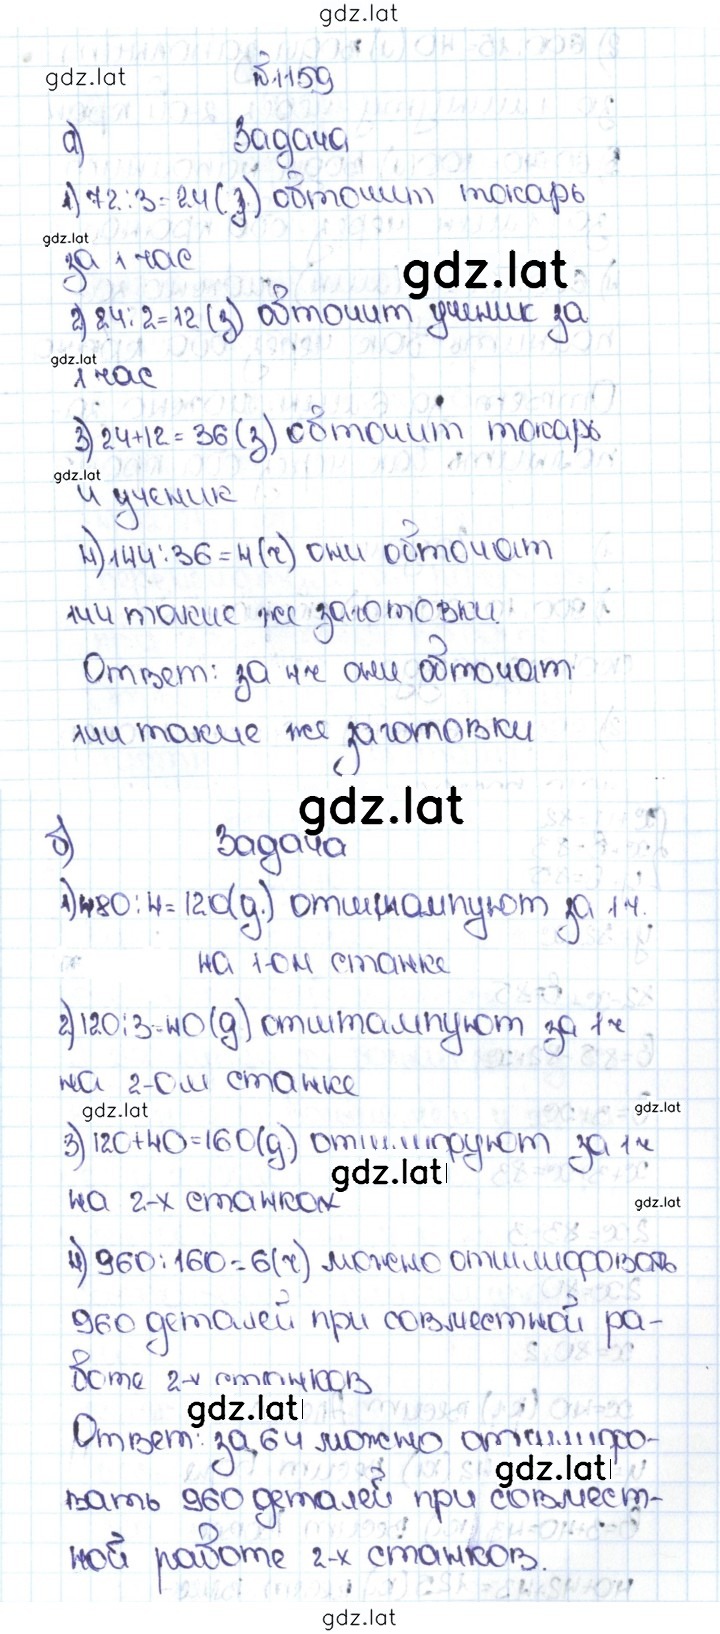 gdz.lat
gdz.lat №1159
а) Задача
1) 72:3=24(з.) обточит токарь
gdz.lat
за 1 час gdz.lat
2) 24:2=12(з) обточит ученик за
gdz.lat
1 час
3) 24+12=36(з) обточит токарь
gdz.lat
и ученик
4) 144:36=4(ч) они обточат
144 такие же заготовки.
Ответ: за 4ч они обточат
144 такие же заготовки
gdz.lat
б) Задача
1) 480:4=120(д.) отштампуют за 1ч.
на 1-ом станке
2) 120:3=40(д) отштампуют за 1ч
на 2-ом станке
gdz.lat gdz.lat
3) 120+40=160(д.) за 1ч
gdz.lat
на 2-х станках gdz.lat
4) 960:160=6(ч) можно отшлифовать
960 деталей при совместной ра-
боте 2-х станков
gdz.lat
Ответ: за 6ч можно
gdz.lat
вать 960 деталей при совмест-
ной работе 2-х станков.
gdz.lat